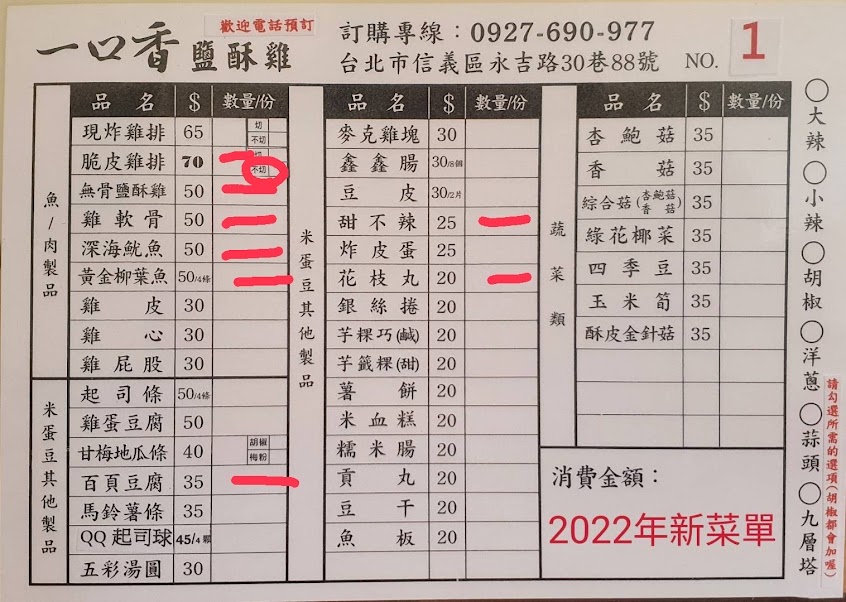 歡迎電話預訂
一口香鹽酥雞
訂購專線：0927-690-977
台北市信義區永吉路30巷88號 NO. 1
品名 $ 數量/份
魚/肉製品
現炸雞排 65 切 不切
脆皮雞排 70 切 不切
無骨鹽酥雞 50
雞軟骨 50
深海魷魚 50
黃金柳葉魚 50/4條
雞皮 30
雞心 30
雞屁股 30
米蛋豆其他製品
起司條 50/4條
雞蛋豆腐 50
甘梅地瓜條 40 胡椒 梅粉
百頁豆腐 35
馬鈴薯條 35
QQ起司球 45/4顆
五彩湯圓 30
品名 $ 數量/份
米蛋豆其他製品
麥克雞塊 30
鑫鑫腸 30/8個
豆皮 30/2片
甜不辣 25
炸皮蛋 25
花枝丸 20
銀絲捲 20
芋粿巧(鹹) 20
芋籤粿(甜) 20
薯餅 20
米血糕 20
糯米腸 20
貢丸 20
豆干 20
魚板 20
品名 $ 數量/份
蔬菜類
杏鮑菇 35
香菇 35
綜合菇(杏鮑菇香菇) 35
綠花椰菜 35
四季豆 35
玉米筍 35
酥皮金針菇 35
消費金額：
2022年新菜單
○大辣○小辣○胡椒○洋蔥○蒜頭○九層塔
請勾選所需的選項(胡椒都會加喔)